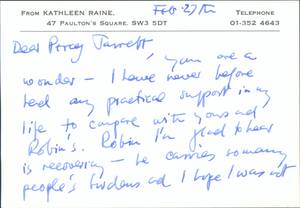 From KATHLEEN RAINE.
47 PAULTON'S SQUARE. SW3 5DT
TELEPHONE
01-352 4643
Feb 27th
Dear Percy Jarrett
you are a
wonder – I have never before
had any practical support in my
life to compare with yours and
Robin's. Robin I'm glad to hear
is recovering – he carries so many
people's burdens and I hope I was not